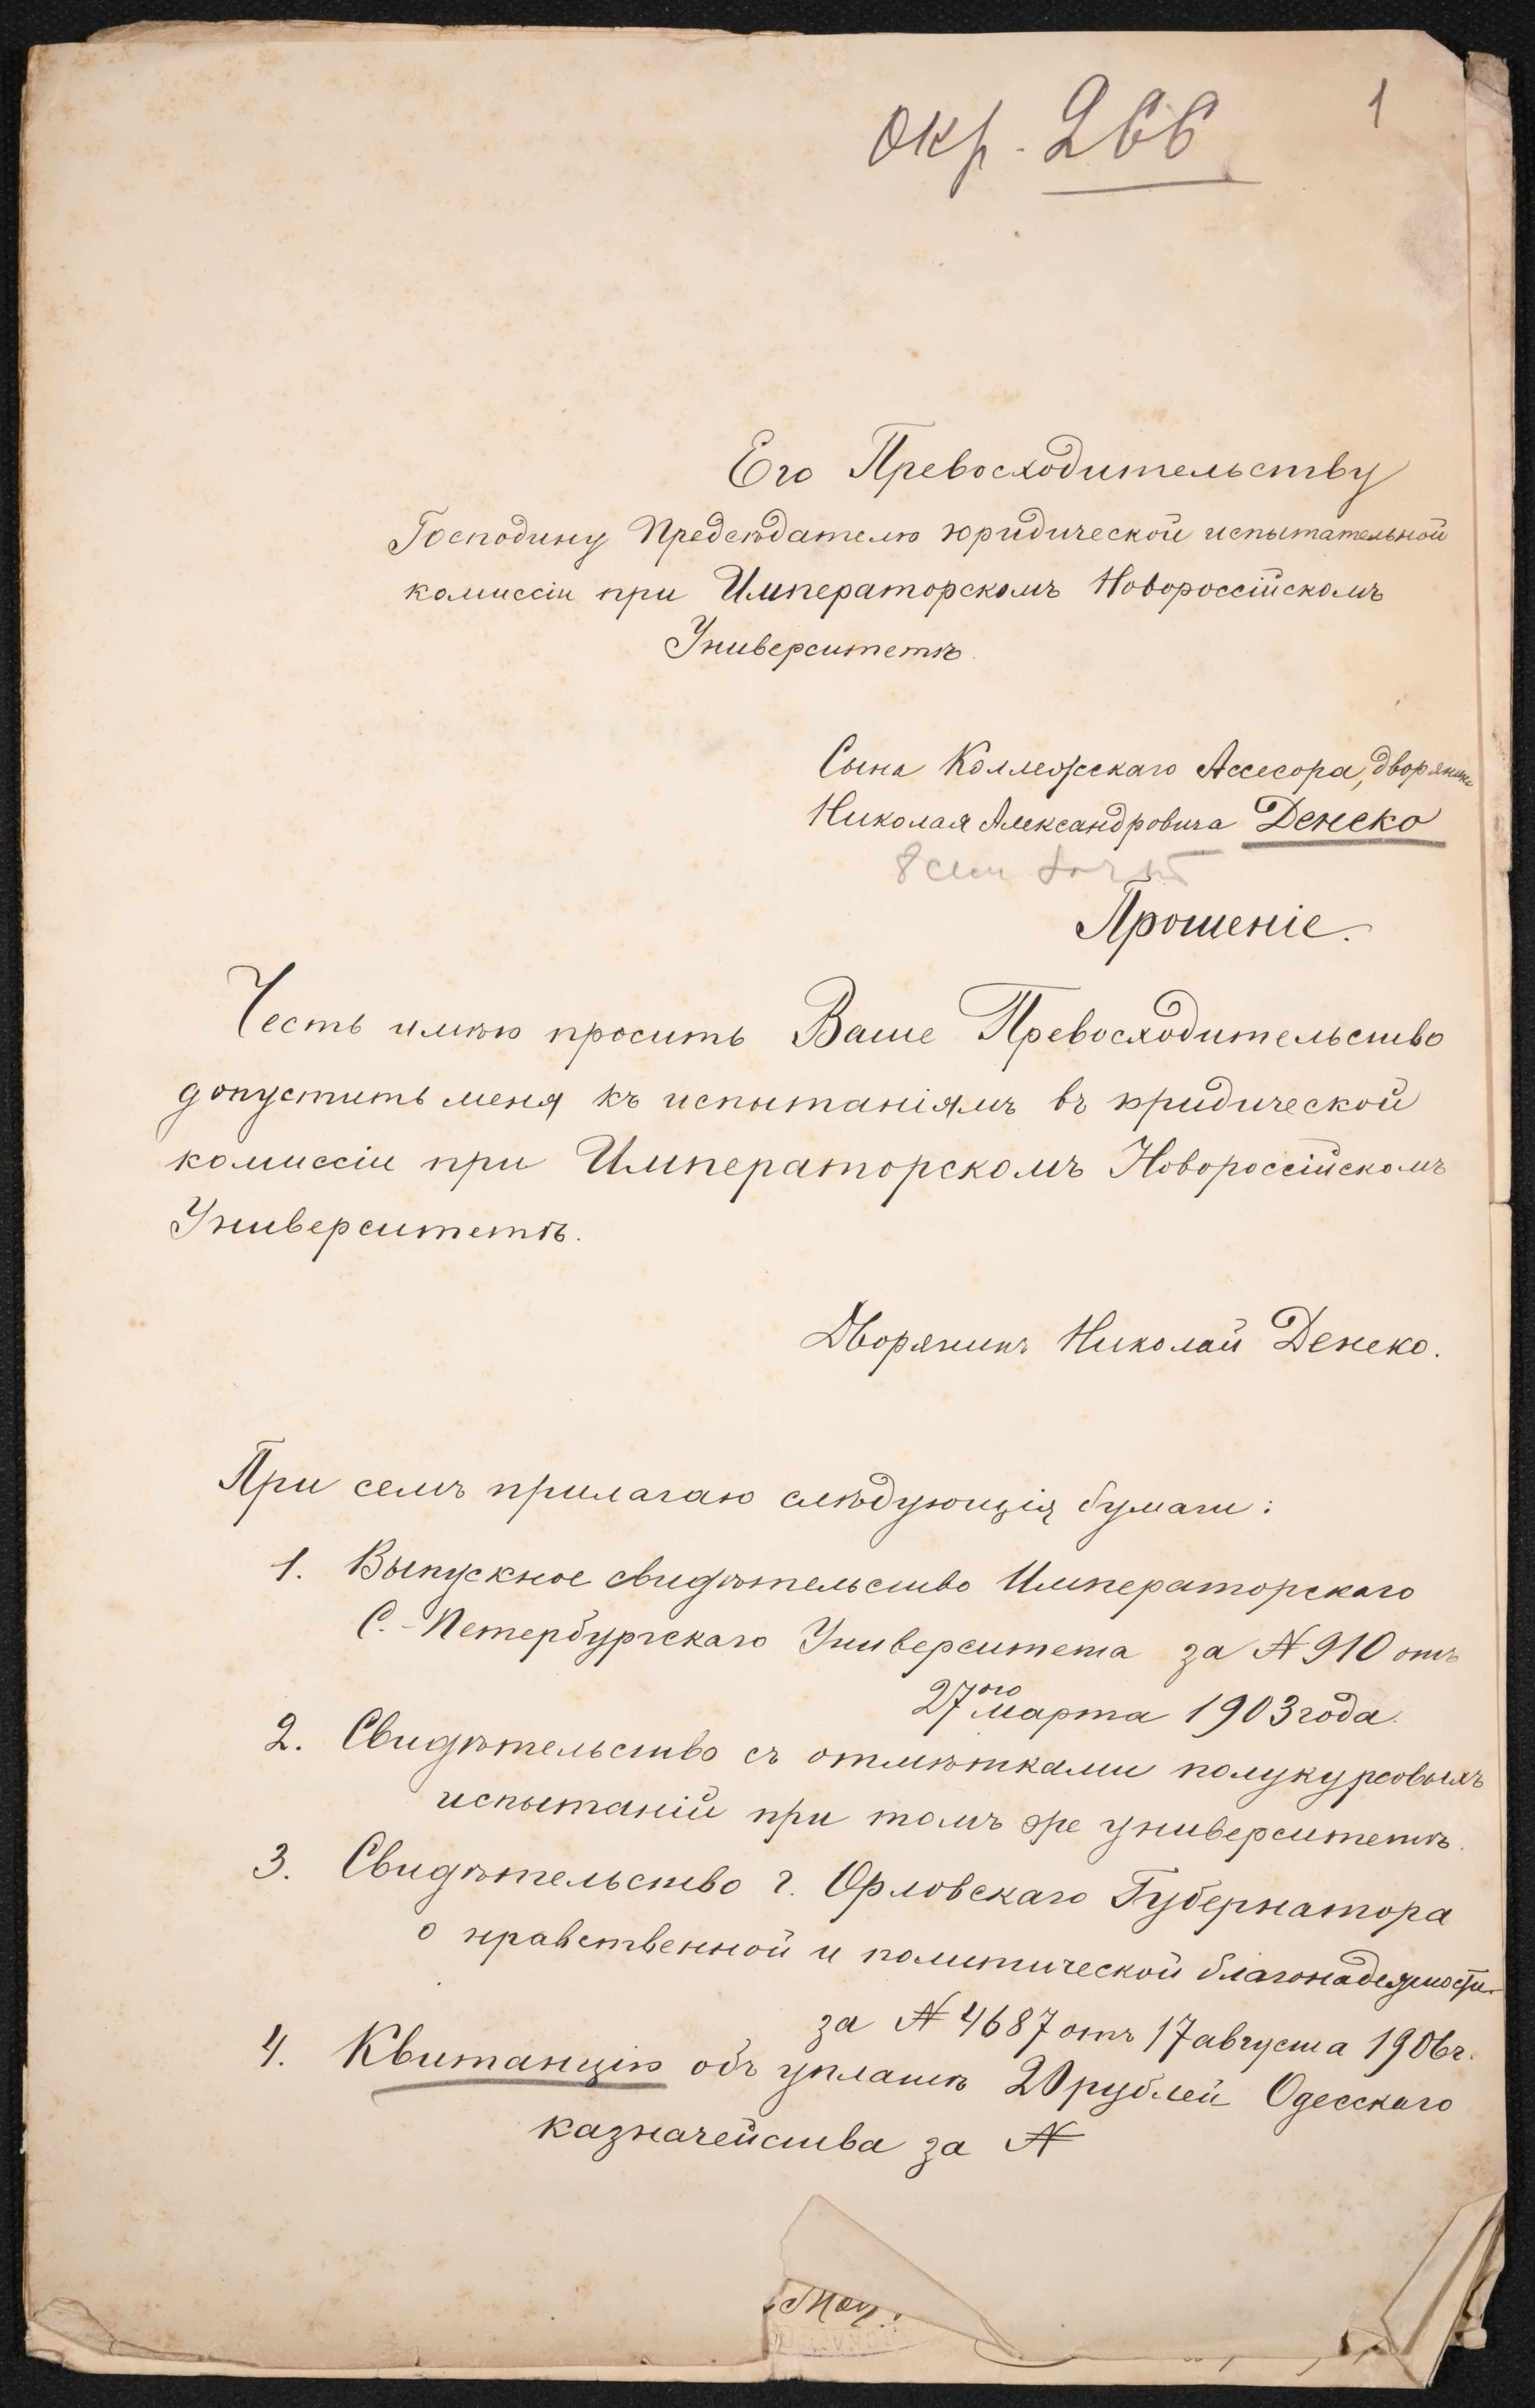 окр. 266
1
Его Превосходительству
Господину Предсѣдателю юридической испытательной
комиссіи при Императорскомъ Новороссійскомъ
Университетѣ.
Сына Коллежскаго Ассесора, дворянина
Николая Александровича Денско
Прошеніе.
Честь имѣю просить Ваше Превосходительство
допустить меня къ испытаніямъ въ юридической
комиссіи при Императорскомъ Новороссійскомъ
Университетѣ.
Дворянинъ Николай Денско.
При семъ прилагаю слѣдующія бумаги:
1. Выпускное свидѣтельство Императорскаго
С.-Петербургскаго Университета за № 910 отъ
27ого марта 1903 года.
2. Свидѣтельство съ отмѣтками полукурсовыхъ
испытаній при томъ же университетѣ.
3. Свидѣтельство г. Орловскаго Губернатора
о нравственной и политической благонадежности
за № 4687 отъ 17 августа 1906 г.
4. Квитанцію объ уплатѣ 20 рублей Одесскаго
казначейства за №